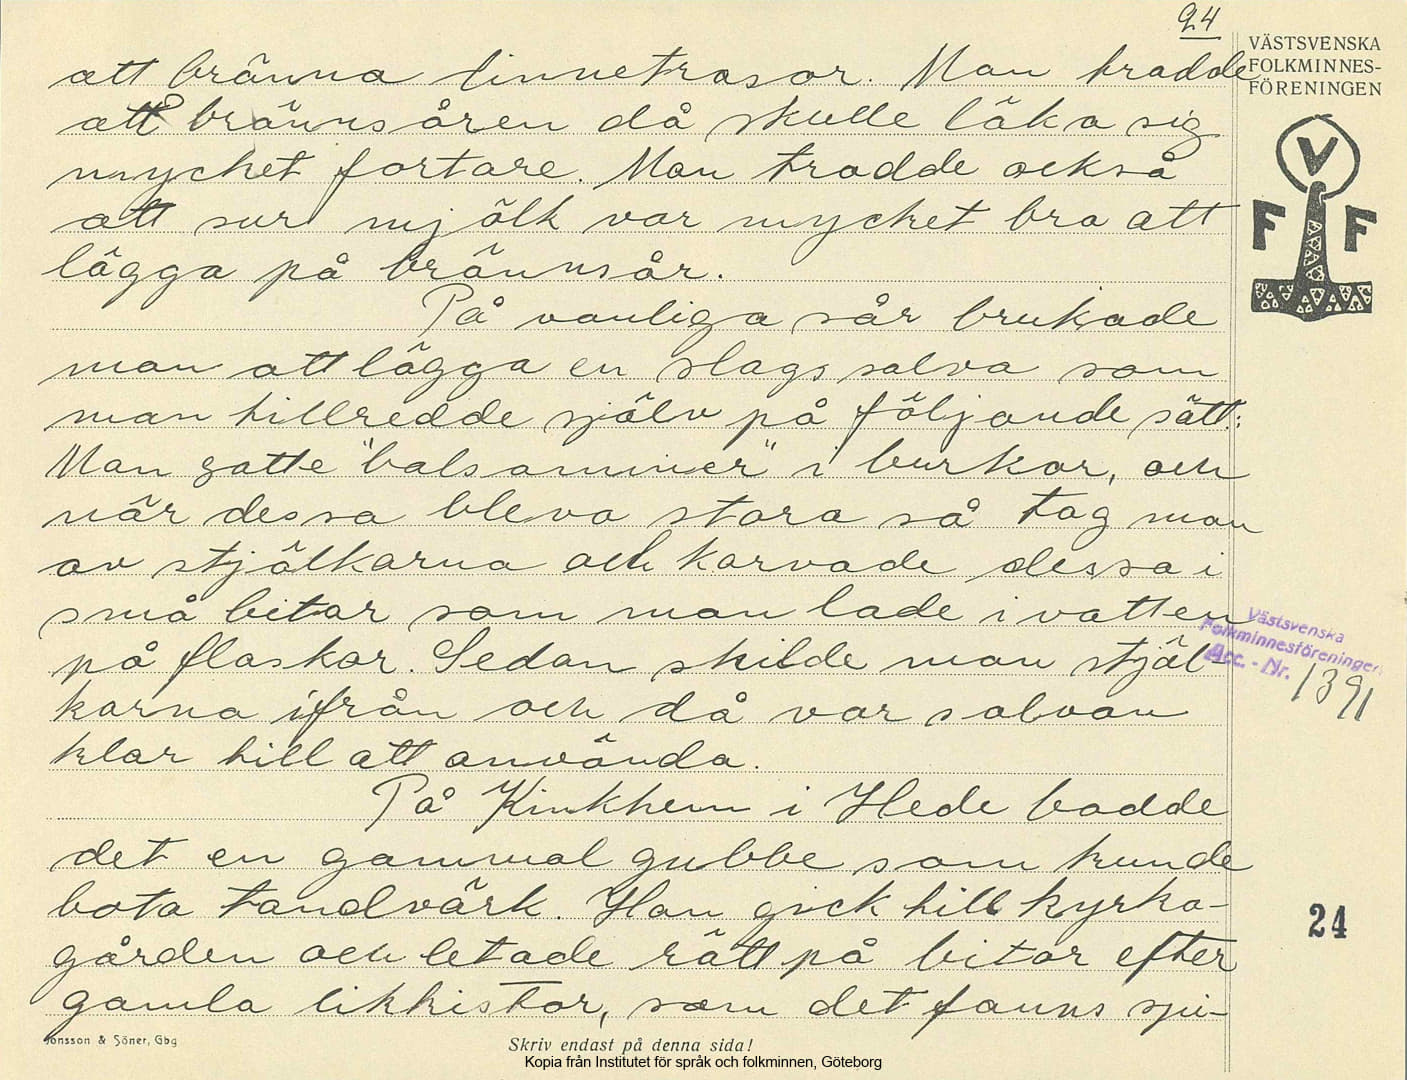 24
VÄSTSVENSKA
FOLKMINNES-
FÖRENINGEN
V
F F
att bränna linnetrasor. Man trodde
att brännsåren då skulle läka sig
mycket fortare. Man trodde också
att sur mjölk var mycket bra att
lägga på brännsår.
På vanliga sår brukade
man att lägga en slags salva som
man tillredde själv på följande sätt:
Man satte "balsaminer" i burkar, och
när dessa bleva stora så tog man
av stjälkarna och karvade dessa i
små bitar som man lade i vatten
på flaskor. Sedan skilde man stjäl-
karna ifrån och då var salvan
klar till att använda.
På Kinkhem i Hede bodde
det en gammal gubbe som kunde
bota tandvärk. Han gick till kyrko-
gården och letade rätt på bitar efter
gamla likkistor, som det fanns spi-
Västsvenska
Folkminnesföreningen
Acc. - Nr. 1391
24
Jonsson & Söner, Gbg
Skriv endast på denna sida!
Kopia från Institutet för språk och folkminnen, Göteborg